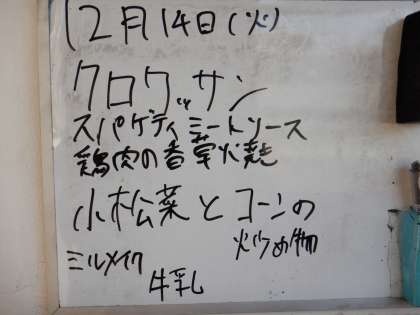 12月14日(火)
クロワッサン
スパゲティミートソース
鶏肉の香草火焼き
小松菜とコーンの
炒め物
ミルメイク
牛乳